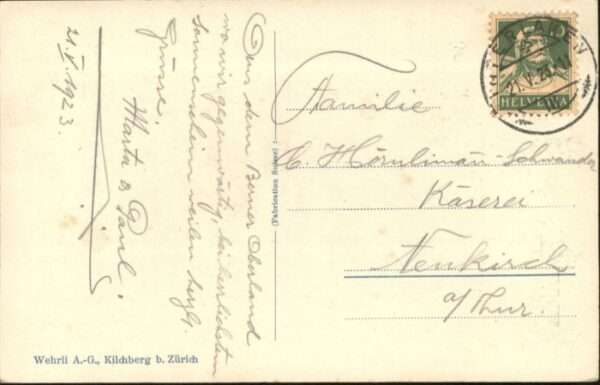 21. V. 1923.
Aus dem Berner Oberland
wo wir gegenwärtig bei herrlichstem
Sonnenschein weilen herzl.
Grüsse.
Marta & Paul.
(Fabrication Suisse)
HELVETIA
21. V. 23
Familie
Hörnlimann-Schwander
Käserei
Neukirch
a/Thur.
Wehrli A.-G., Kilchberg b. Zürich